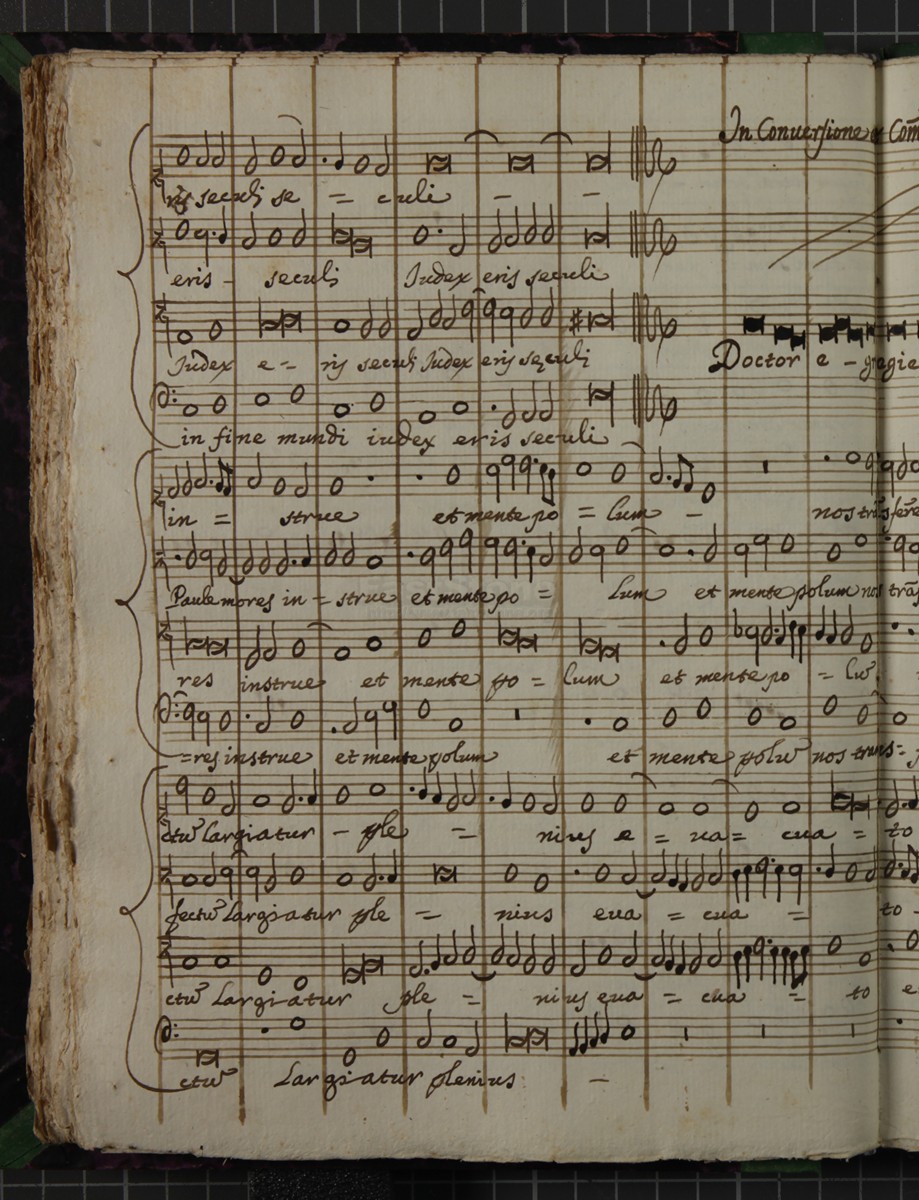 In Conversione & Com
ris seculi se = culi - -
eris - seculi Iudex eris seculi
Iudex e - ris seculi Iudex eris seculi
Doctor e - gregie
in fine mundi iudex eris seculi
in = strue et mente po = lum - nos trãsfere
Paule mores in = strue et mente po = lum et mente polum nos trãs
res instrue et mente po = lum et mente po = lũ
= res instrue et mente polum et mente polũ nos trans =
ctũ largiatur - ple = nius e = ua = cua = to
fectũ largiatur ple = nius eua = cua = to -
ctũ largiatur ple = nius eua = cua = to e
ctũ Largiatur plenius -